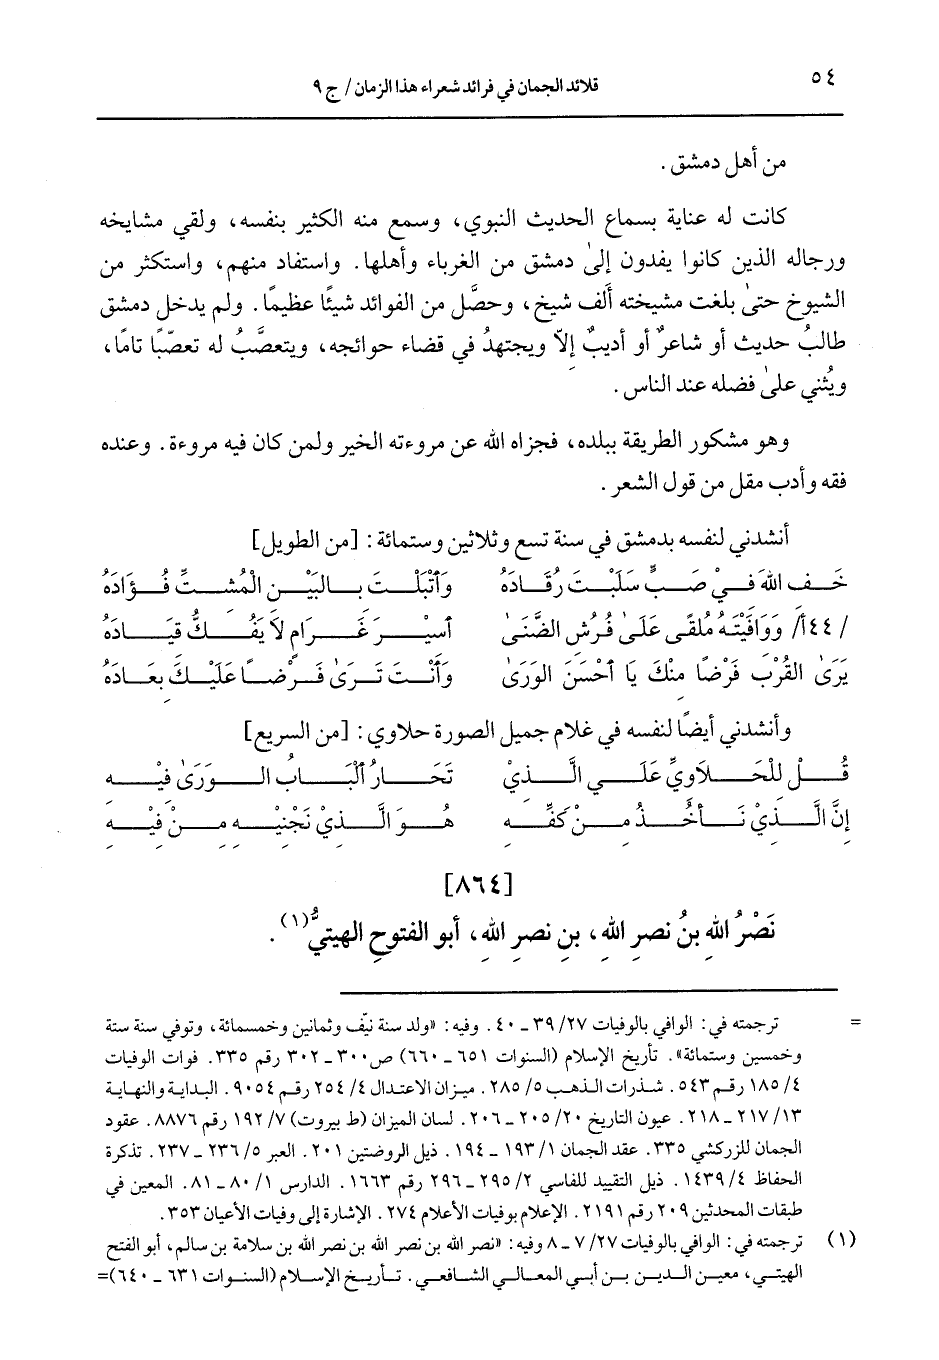 ٥٤
قلائد الجمان في فرائد شعراء هذا الزمان / ج ٩
من أهل دمشق .
كانت له عناية بسماع الحديث النبوي، وسمع منه الكثير بنفسه، ولقي مشايخه
ورجاله الذين كانوا يفدون إلىٰ دمشق من الغرباء وأهلها. واستفاد منهم، واستكثر من
الشيوخ حتىٰ بلغت مشيخته ألف شيخ، وحصَّل من الفوائد شيئًا عظيمًا. ولم يدخل دمشق
طالبُ حديث أو شاعرٌ أو أديبٌ إلاّ ويجتهدُ في قضاء حوائجه، ويتعصَّبُ له تعصّبًا تامًا،
ويُثني علىٰ فضله عند الناس .
وهو مشكور الطريقة ببلده، فجزاه الله عن مروءته الخير ولمن كان فيه مروءة. وعنده
فقه وأدب مقل من قول الشعر .
أنشدني لنفسه بدمشق في سنة تسع وثلاثين وستمائة: [من الطويل]
خَـفِ اللهَ فـيْ صَـبٍّ سَلَبْتَ رُقَادَهُ وَأَتْبَلْـتَ بـالبَيْـنِ الْمُشـتِّ فُـؤَادَهُ
/٤٤أ/ وَوَافَيْتَـهُ مُلقَـى عَلَـىٰ فُرُشِ الضَّنَىٰ أسيْـرَ غَـرَامٍ لاَ يَفُـكُّ قيَـادَهُ
يَرَىٰ القُرْبَ فَرْضًا مِنْكَ يَا أَحْسَنَ الوَرَىٰ وَأَنْـتَ تَـرَىٰ فَـرْضـًا عَلَيْـكَ بِعَـادَهُ
وأنشدني أيضًا لنفسه في غلام جميل الصورة حلاوي: [من السريع]
قُـلْ للْحَـلاَويِّ عَلَـي الَّـذيْ تَحَـارُ أَلْبَـابُ الـوَرَىٰ فيْـه
إنَّ الَّـذيْ نَـأخُـذُ مـنْ كَفِّـهِ هُـوَ الَّـذيْ نَجْنِيْـهِ مِـنْ فِيْـهِ
[٨٦٤]
نَصْرُ اللهِ بنُ نصرِ اللهِ، بنِ نصرِ اللهِ، أبو الفتوحِ الهيتيُّ(١) .
= ترجمته في: الوافي بالوفيات ٢٧/ ٣٩ ـ ٤٠. وفيه: «ولد سنة نيّف وثمانين وخمسمائة، وتوفي سنة ستة
وخمسين وستمائة». تأريخ الإسلام (السنوات ٦٥١ ـ ٦٦٠) ص٣٠٠ ـ ٣٠٢ رقم ٣٣٥. فوات الوفيات
٤/ ١٨٥ رقم ٥٤٣. شذرات الذهب ٥/ ٢٨٥. ميزان الاعتدال ٤/ ٢٥٤ رقم ٩٠٥٤. البداية والنهاية
١٣/ ٢١٧ ـ ٢١٨. عيون التاريخ ٢٠/ ٢٠٥ ـ ٢٠٦. لسان الميزان (ط بيروت) ٧/ ١٩٢ رقم ٨٨٧٦. عقود
الجمان للزركشي ٣٣٥. عقد الجمان ١/ ١٩٣ ـ ١٩٤. ذيل الروضتين ٢٠١. العبر ٥/ ٢٣٦ ـ ٢٣٧. تذكرة
الحفاظ ٤/ ١٤٣٩. ذيل التقييد للفاسي ٢/ ٢٩٥ ـ ٢٩٦ رقم ١٦٦٣. الدارس ١/ ٨٠ ـ ٨١. المعين في
طبقات المحدثين ٢٠٩ رقم ٢١٩١. الإعلام بوفيات الأعلام ٢٧٤. الإشارة إلى وفيات الأعيان ٣٥٣.
(١) ترجمته في: الوافي بالوفيات ٢٧/ ٧ ـ ٨ وفيه: «نصر الله بن نصر الله بن نصر الله بن سلامة بن سالم، أبو الفتح
الهيتي، معين الدين بن أبي المعالي الشافعي. تأريخ الإسلام (السنوات ٦٣١ ـ ٦٤٠)=